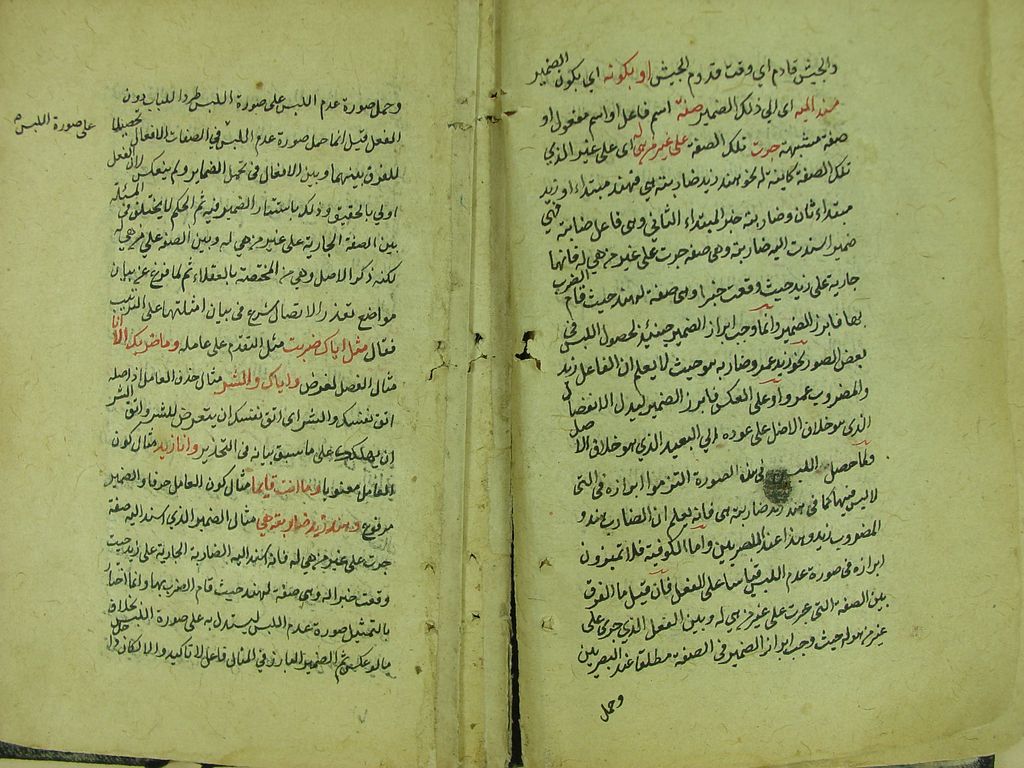 والجيش قادم اي وقت قدوم الجيش او بكونه اي بكون الضمير
مسند اليه اى الى ذلك الضمير صفة اسم فاعل او اسم مفعول او
صفة مشبهة جرت تلك الصفة على غير من هى له اى على غير الذي
تلك الصفة كاينة له نحو هند زيد ضاربته هى فهند مبتداء او زيد
مبتداء ثان وضاربته خبر المبتداء الثاني وهى فاعل ضاربته فهي
ضمير اسندت اليه ضاربته وهى صفة جرت على غير من هى له فانها
جارية على زيد حيث وقعت خبرا وهى صفة لهند حيث قام الضرب
بها فابرز الضمير وانما وجب ابراز الضمير حينئذ لحصول اللبس في
بعض الصور نحو زيد عمرو ضاربه هو حيث لا يعلم ان الفاعل زيد
والمضروب عمرو او على العكس فابرز الضمير ليدل الانفصال
الذى هو خلاف الاصل على عوده الي البعيد الذي هو خلاف الاصل
ولما حصل اللبس في هذه الصورة التزموا ابرازه في التي
لا لبس فيها كما في هند زيد ضاربته هى فانه يعلم ان الضارب هند و
المضروب زيد وهذا عند البصريين واما الكوفية فلا يعتبرون
ابرازه في صورة عدم اللبس قياسا على الفعل فان قيل ما الفرق
بين الصفة التي جرت على غير من هى له وبين الفعل الذي جرى على
غير من هو له حيث وجب ابراز الضمير في الصفة مطلقا عند البصريين
وحمل
وحمل صورة عدم اللبس على صورة اللبس طردا للباب دون
على صورة اللبس
الفعل قيل انما حمل صورة عدم اللبس في الصفات الافعال تحصيلا
للفرق بينهما وبين الافعال في تحمل الضماير ولم ينعكس لان الفعل
اولى بالحقيق وذلك باستتار الضمير فيه ثم الحكم لا يختلف في المسئلة
بين الصفة الجارية على غير من هي له وبين الصفة على من هي له
لكنه ذكر الاصل وهي من المختصة بالعقلاء ثم لما فرغ عن بيان
مواضع تعذر الاتصال شرع في بيان امثلتها على الترتيب
فقال مثل اياك ضربت مثل التقدم على عامله وما ضربك الا انا
مثال الفصل لغرض واياك والشر مثال حذف العامل اذ اصله
اتق نفسك والشر اى اتق نفسك ان يتعرض للشر واتق الشر
ان يهلكك على ما سبق بيانه في التحذير وانا زيد مثال كون
العامل معنويا وما انت قايما مثال كون العامل حرفا والضمير
مرفوع وهند زيد ضاربته هي مثال الضمير الذي اسند اليه صفة
جرت على غير من هي له فانه اسند اليه الضاربة الجارية على زيد حيث
وقعت خبرا له وهى صفة لهند حيث قام الضرب بها وانما اختار
بالتمثيل صورة عدم اللبس ليستدل به على صورة اللبس بخلاف
ما لو عكس ثم الضمير البارز في المثال فاعل لا تاكيد والا لكان